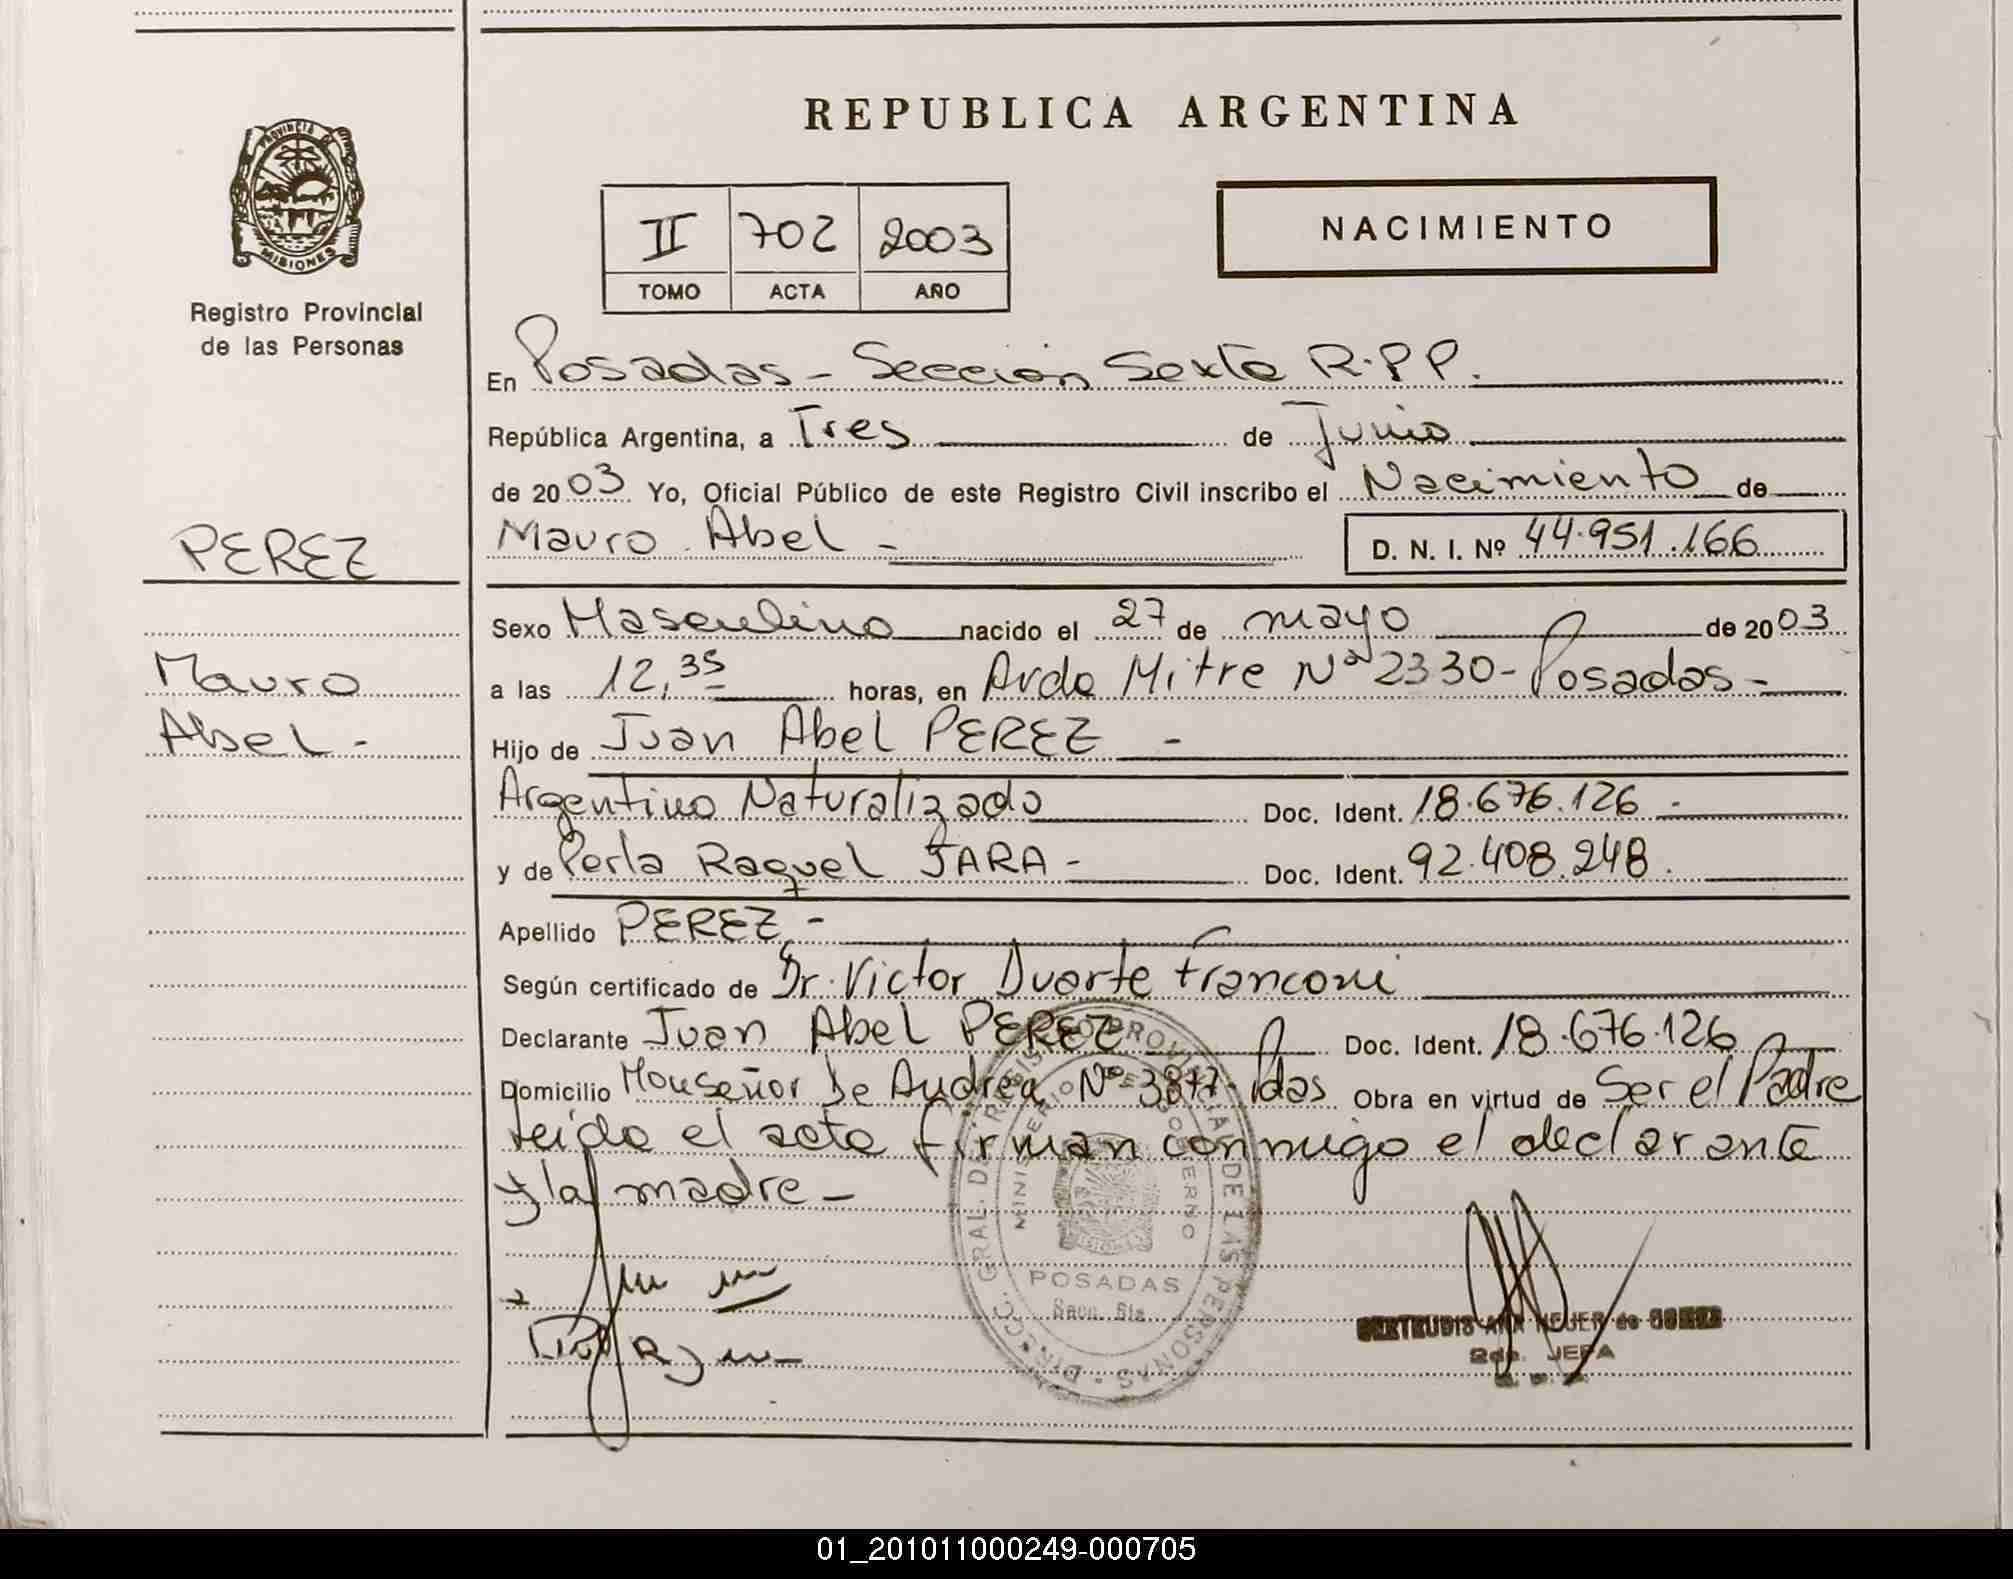 REPUBLICA ARGENTINA
PROVINCIA DE
MISIONES
Registro Provincial
de las Personas
II 702 2003
TOMO ACTA AÑO
NACIMIENTO
En Posadas - Sección Sexta R.P.P.
República Argentina, a Tres de Junio
de 2003 Yo, Oficial Público de este Registro Civil inscribo el Nacimiento de
Mauro Abel - D. N. I. Nº 44.951.166
PEREZ
Mauro
Abel -
Sexo Masculino nacido el 27 de mayo de 2003
a las 12,35 horas, en Avda Mitre Nº 2330 - Posadas -
Hijo de Juan Abel PEREZ -
Argentino Naturalizado Doc. Ident. 18.676.126 -
y de Perla Raquel JARA - Doc. Ident. 92.408.248.
Apellido PEREZ -
Según certificado de Dr. Victor Duarte Franconi
Declarante Juan Abel PEREZ Doc. Ident. 18.676.126
Domicilio Monseñor De Andrea Nº 3877 - Pdas Obra en virtud de Ser el Padre
Leida el acta firman conmigo el declarante
y la madre -
DIRECC. GRAL. DE REGISTRO PROVINCIAL DE LAS PERSONAS
MINISTERIO DE GOBIERNO
MISIONES
POSADAS
Secc. 6ta
GERTRUDIS ANA de
2da. JEFA
01_201011000249-000705